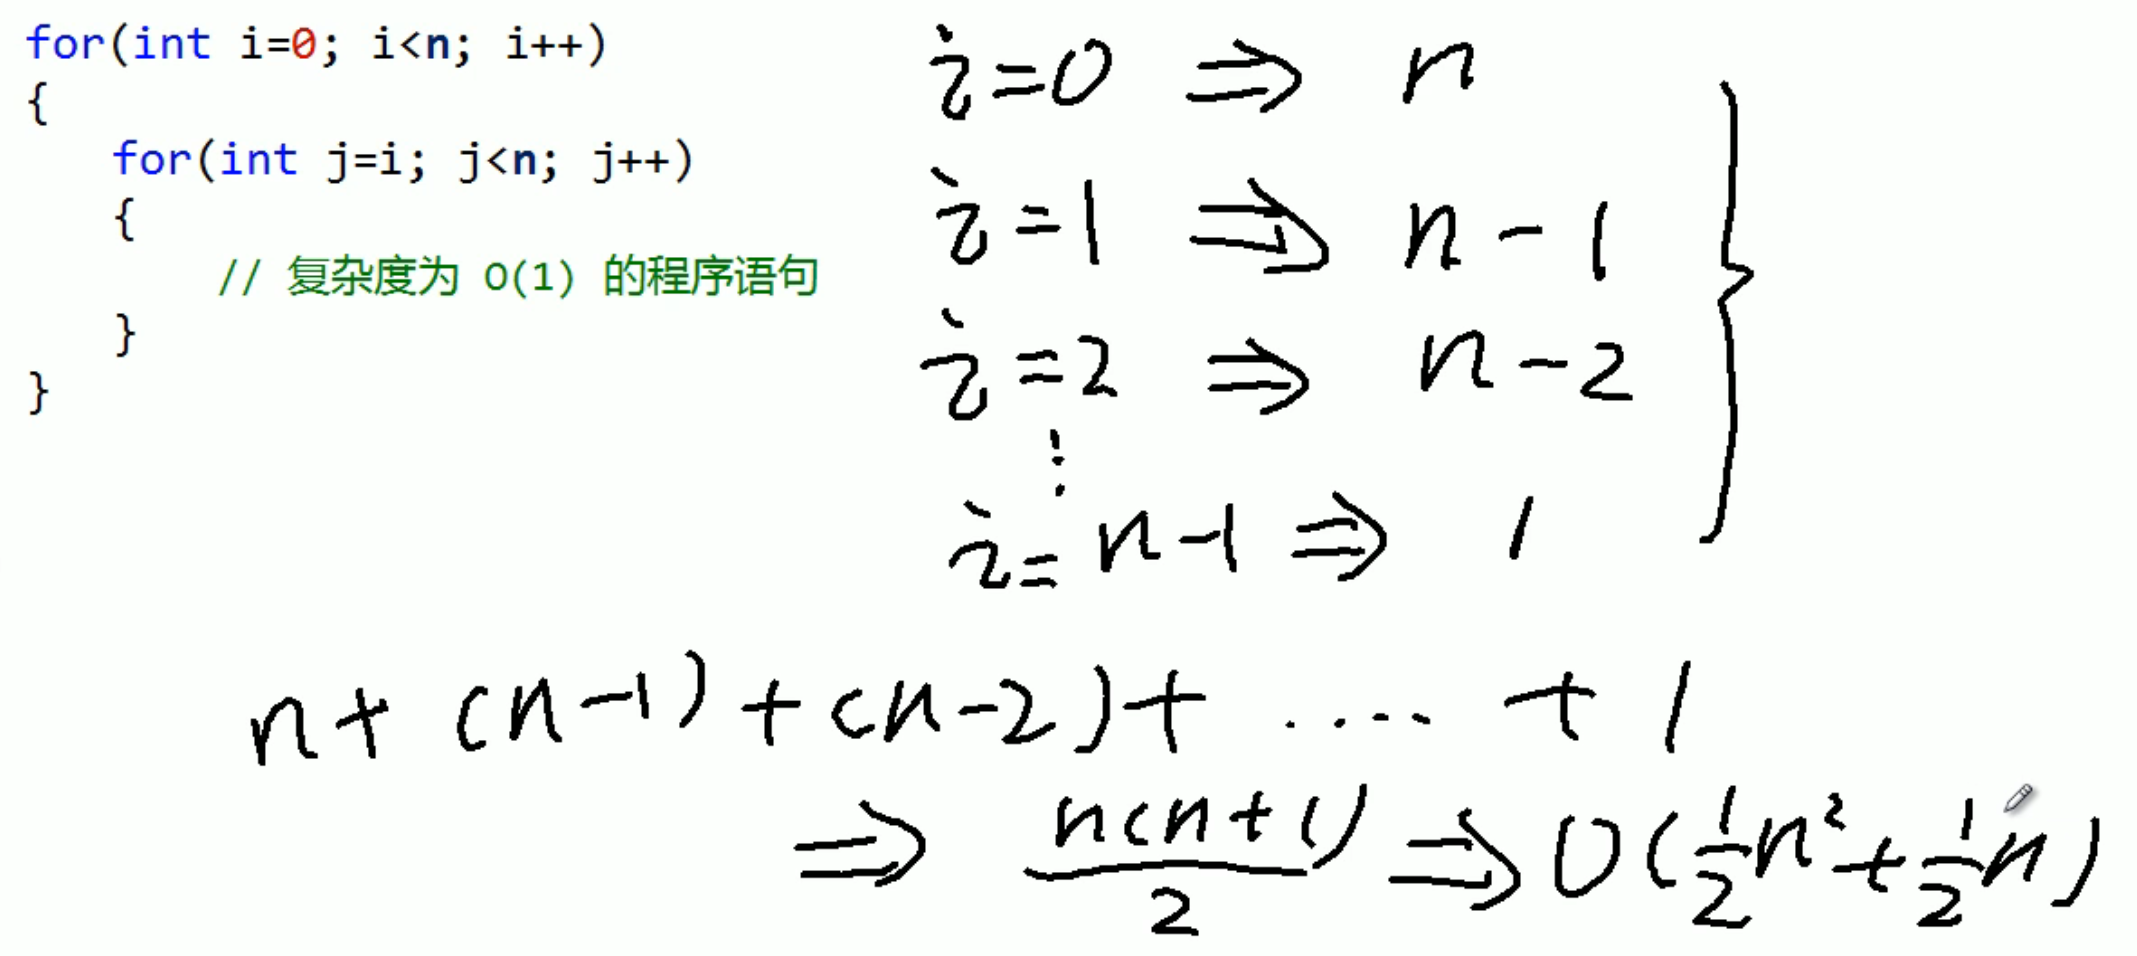 for(int i=0; i<n; i++)
{
for(int j=i; j<n; j++)
{
// 复杂度为 O(1) 的程序语句
}
}
i=0 ⇒ n
i=1 ⇒ n-1
i=2 ⇒ n-2
⋮
i=n-1 ⇒ 1
n+(n-1)+(n-2)+.....+1
⇒ n(n+1)/2 ⇒ O(1/2n²+1/2n)